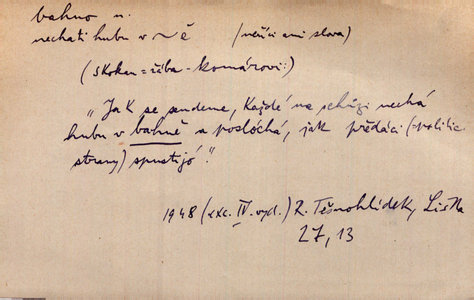 bahno n.
nechati hubu v ~ě (neříci ani slova)
(Skokan = žába - komárovi:)
„Jak se sendeme, každé na schůzi nechá
hubu v bahně a poslóchá, jak předáci (= politic.
strany) spustijó."
1948 (exc. IV. vyd.) R. Těsnohlídek, Liška
27, 13